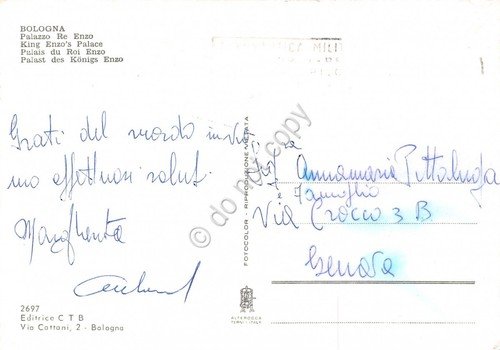 BOLOGNA
Palazzo Re Enzo
King Enzo's Palace
Palais du Roi Enzo
Palast des Königs Enzo
Grati del ricordo invia
mo affettuosi saluti.
Margherita
do not copy
FOTOCOLOR - RIPRODUZIONE VIETATA
Annamaria Pittaluga
Famiglia
Via Crocco 3 B
Genova
2697
Editrice C T B
Via Cottoni, 2 - Bologna
ALTEROCCA
TERNI ITALY